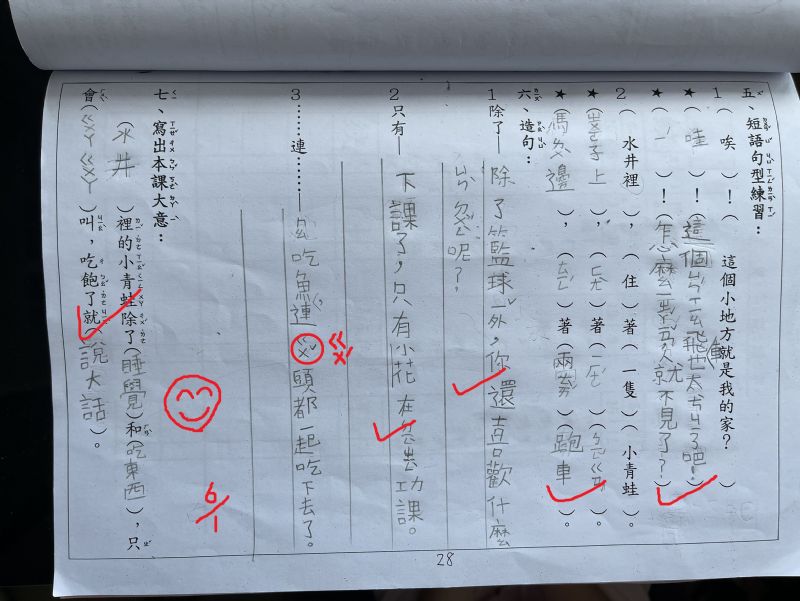 五、短語句型練習：
1（唉）！（這個小地方就是我的家？）
★（哇）！（這個ㄉㄧㄠ飛也太ㄘㄤ了吧！）
★（ㄧˊ）！（怎麼一轉眼就不見了？）
2（水井裡），（住）著（一隻）（小青蛙）。
★（登子上），（ㄈㄤˋ）著（一ㄓ）（ㄇㄠ ㄍㄡˇ）。
★（馬ㄌㄨˋ邊），（ㄊㄧㄥˊ）著（兩ㄌㄧㄤˋ）（跑車）。
六、造句：
1除了—除了籃球一外，你還喜歡什麼
ㄉㄨㄥ ㄒㄧ呢？
2只有—下課了，只有小花在ㄒㄧㄝˇ功課。
3……連……ㄇㄠ吃魚連ㄍㄨˇ頭都一起吃下去了。
ㄍㄨˇ
七、寫出本課大意：
（水井）裡的小青蛙除了（睡覺）和（吃東西），只
會（ㄍㄨㄚ ㄍㄨㄚ）叫，吃飽了就（說大話）。
6/1
28